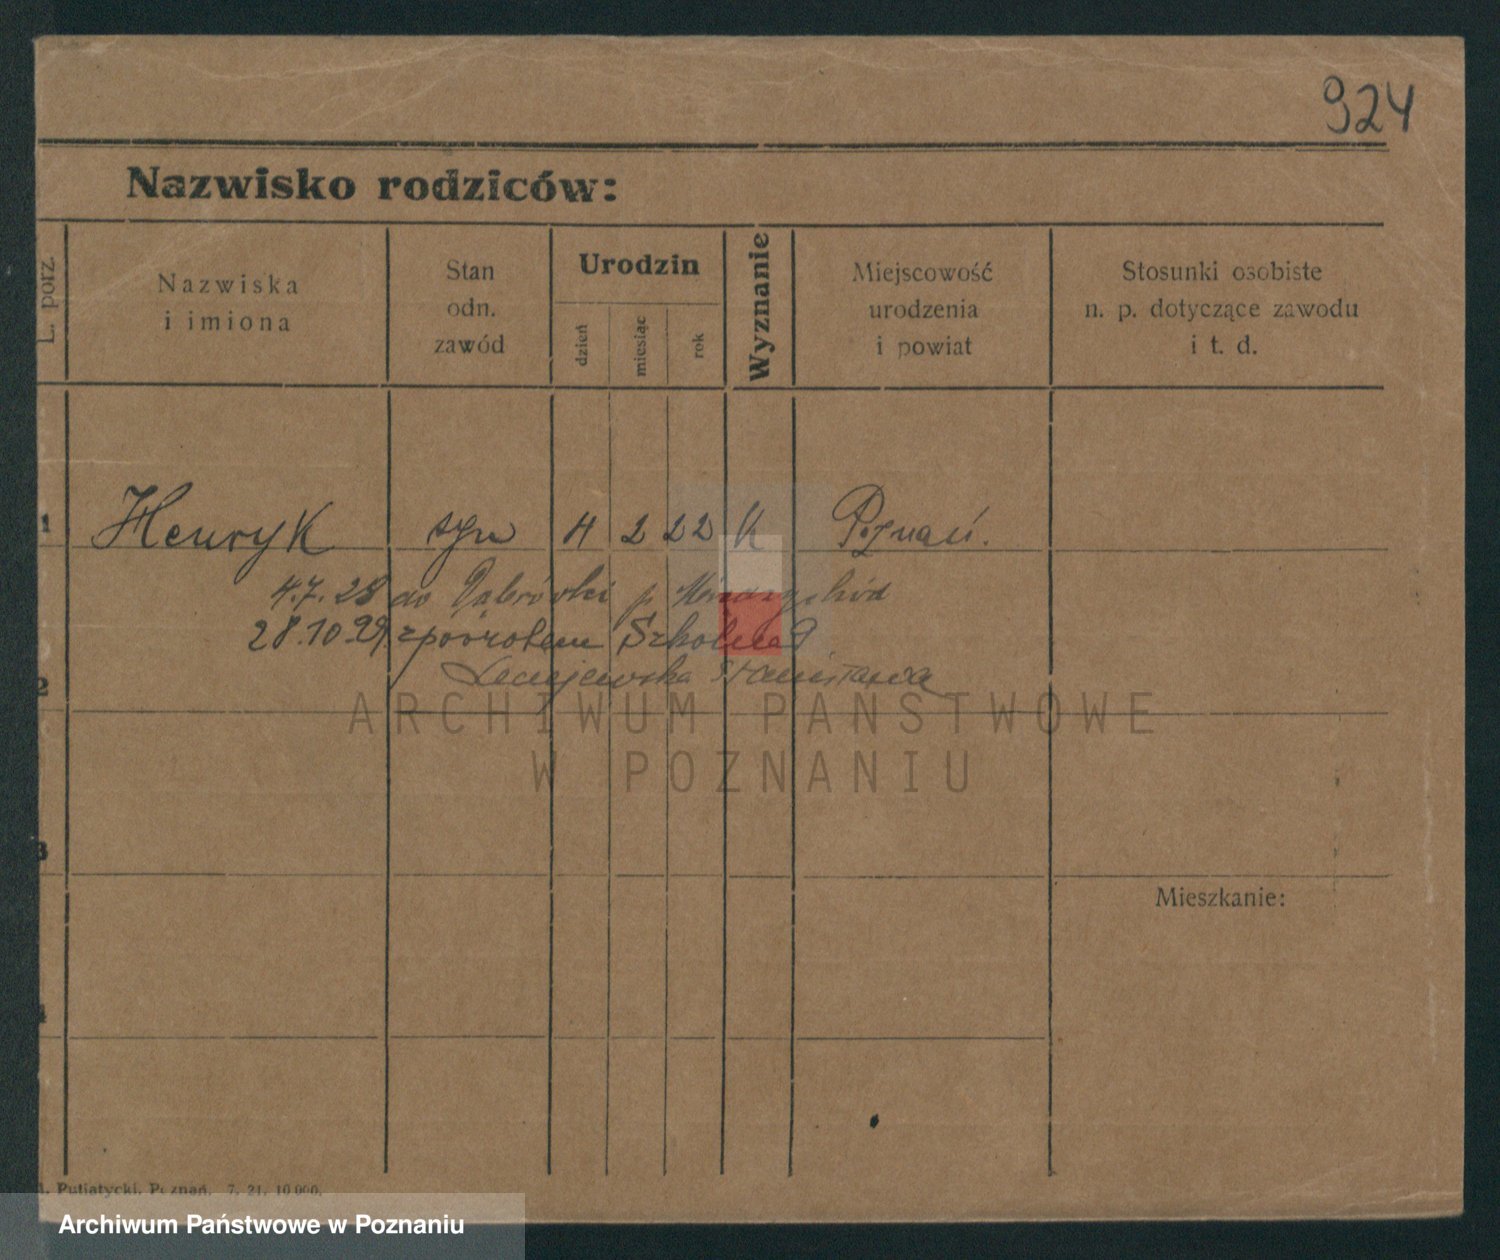 924
Nazwisko rodziców:
L. porz.
Nazwiska
i imiona
Stan
odn.
zawód
Urodzin
dzień
miesiąc
rok
Wyznanie
Miejscowość
urodzenia
i powiat
Stosunki osobiste
n. p. dotyczące zawodu
i t. d.
1 Henryk syn 4 2 22 k Poznań.
4.7.28 do Dąbrówki p. Międzychód
28.10.29. zpowrotem Szkolna 9
Stanisława
2
ARCHIWUM PAŃSTWOWE
W POZNANIU
3
Mieszkanie:
4
Putiatycki, Poznań. 7. 21. 10 000.
Archiwum Państwowe w Poznaniu